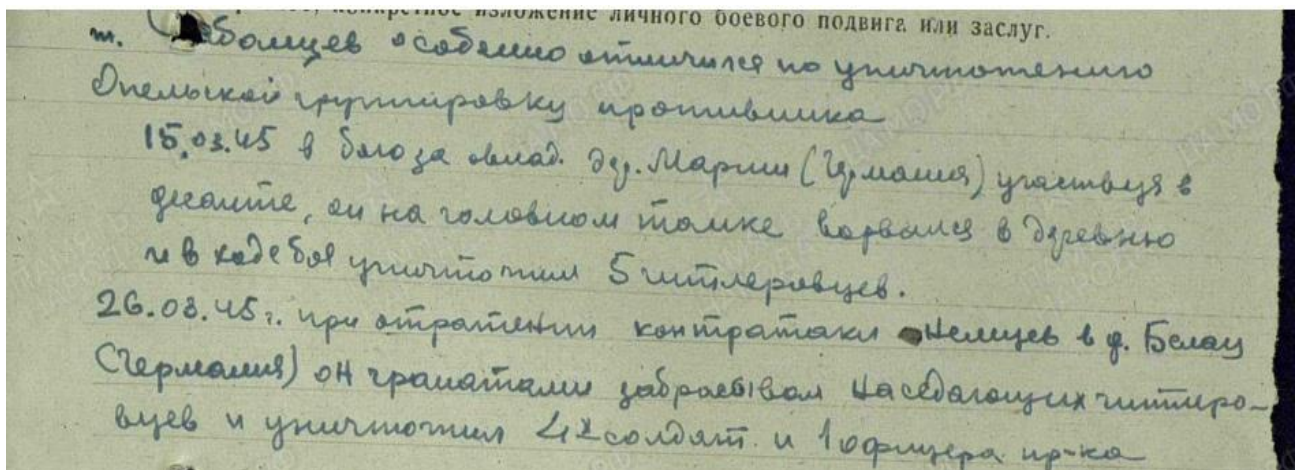 конкретное изложение личного боевого подвига или заслуг.
т. особенно отличился по уничтожению
Опельской группировку противника
15.03.45 в бою за овлад. дер. Марши (Германия) участвуя в
десанте, он на головном танке ворвался в деревню
и в ходе боя уничтожил 5 гитлеровцев.
26.03.45г. при отражении контратаки немцев в д.
(Германия) он гранатами забрасывал наседающих гитлеро-
вцев и уничтожил 4х солдат и 1 офицера пр-ка